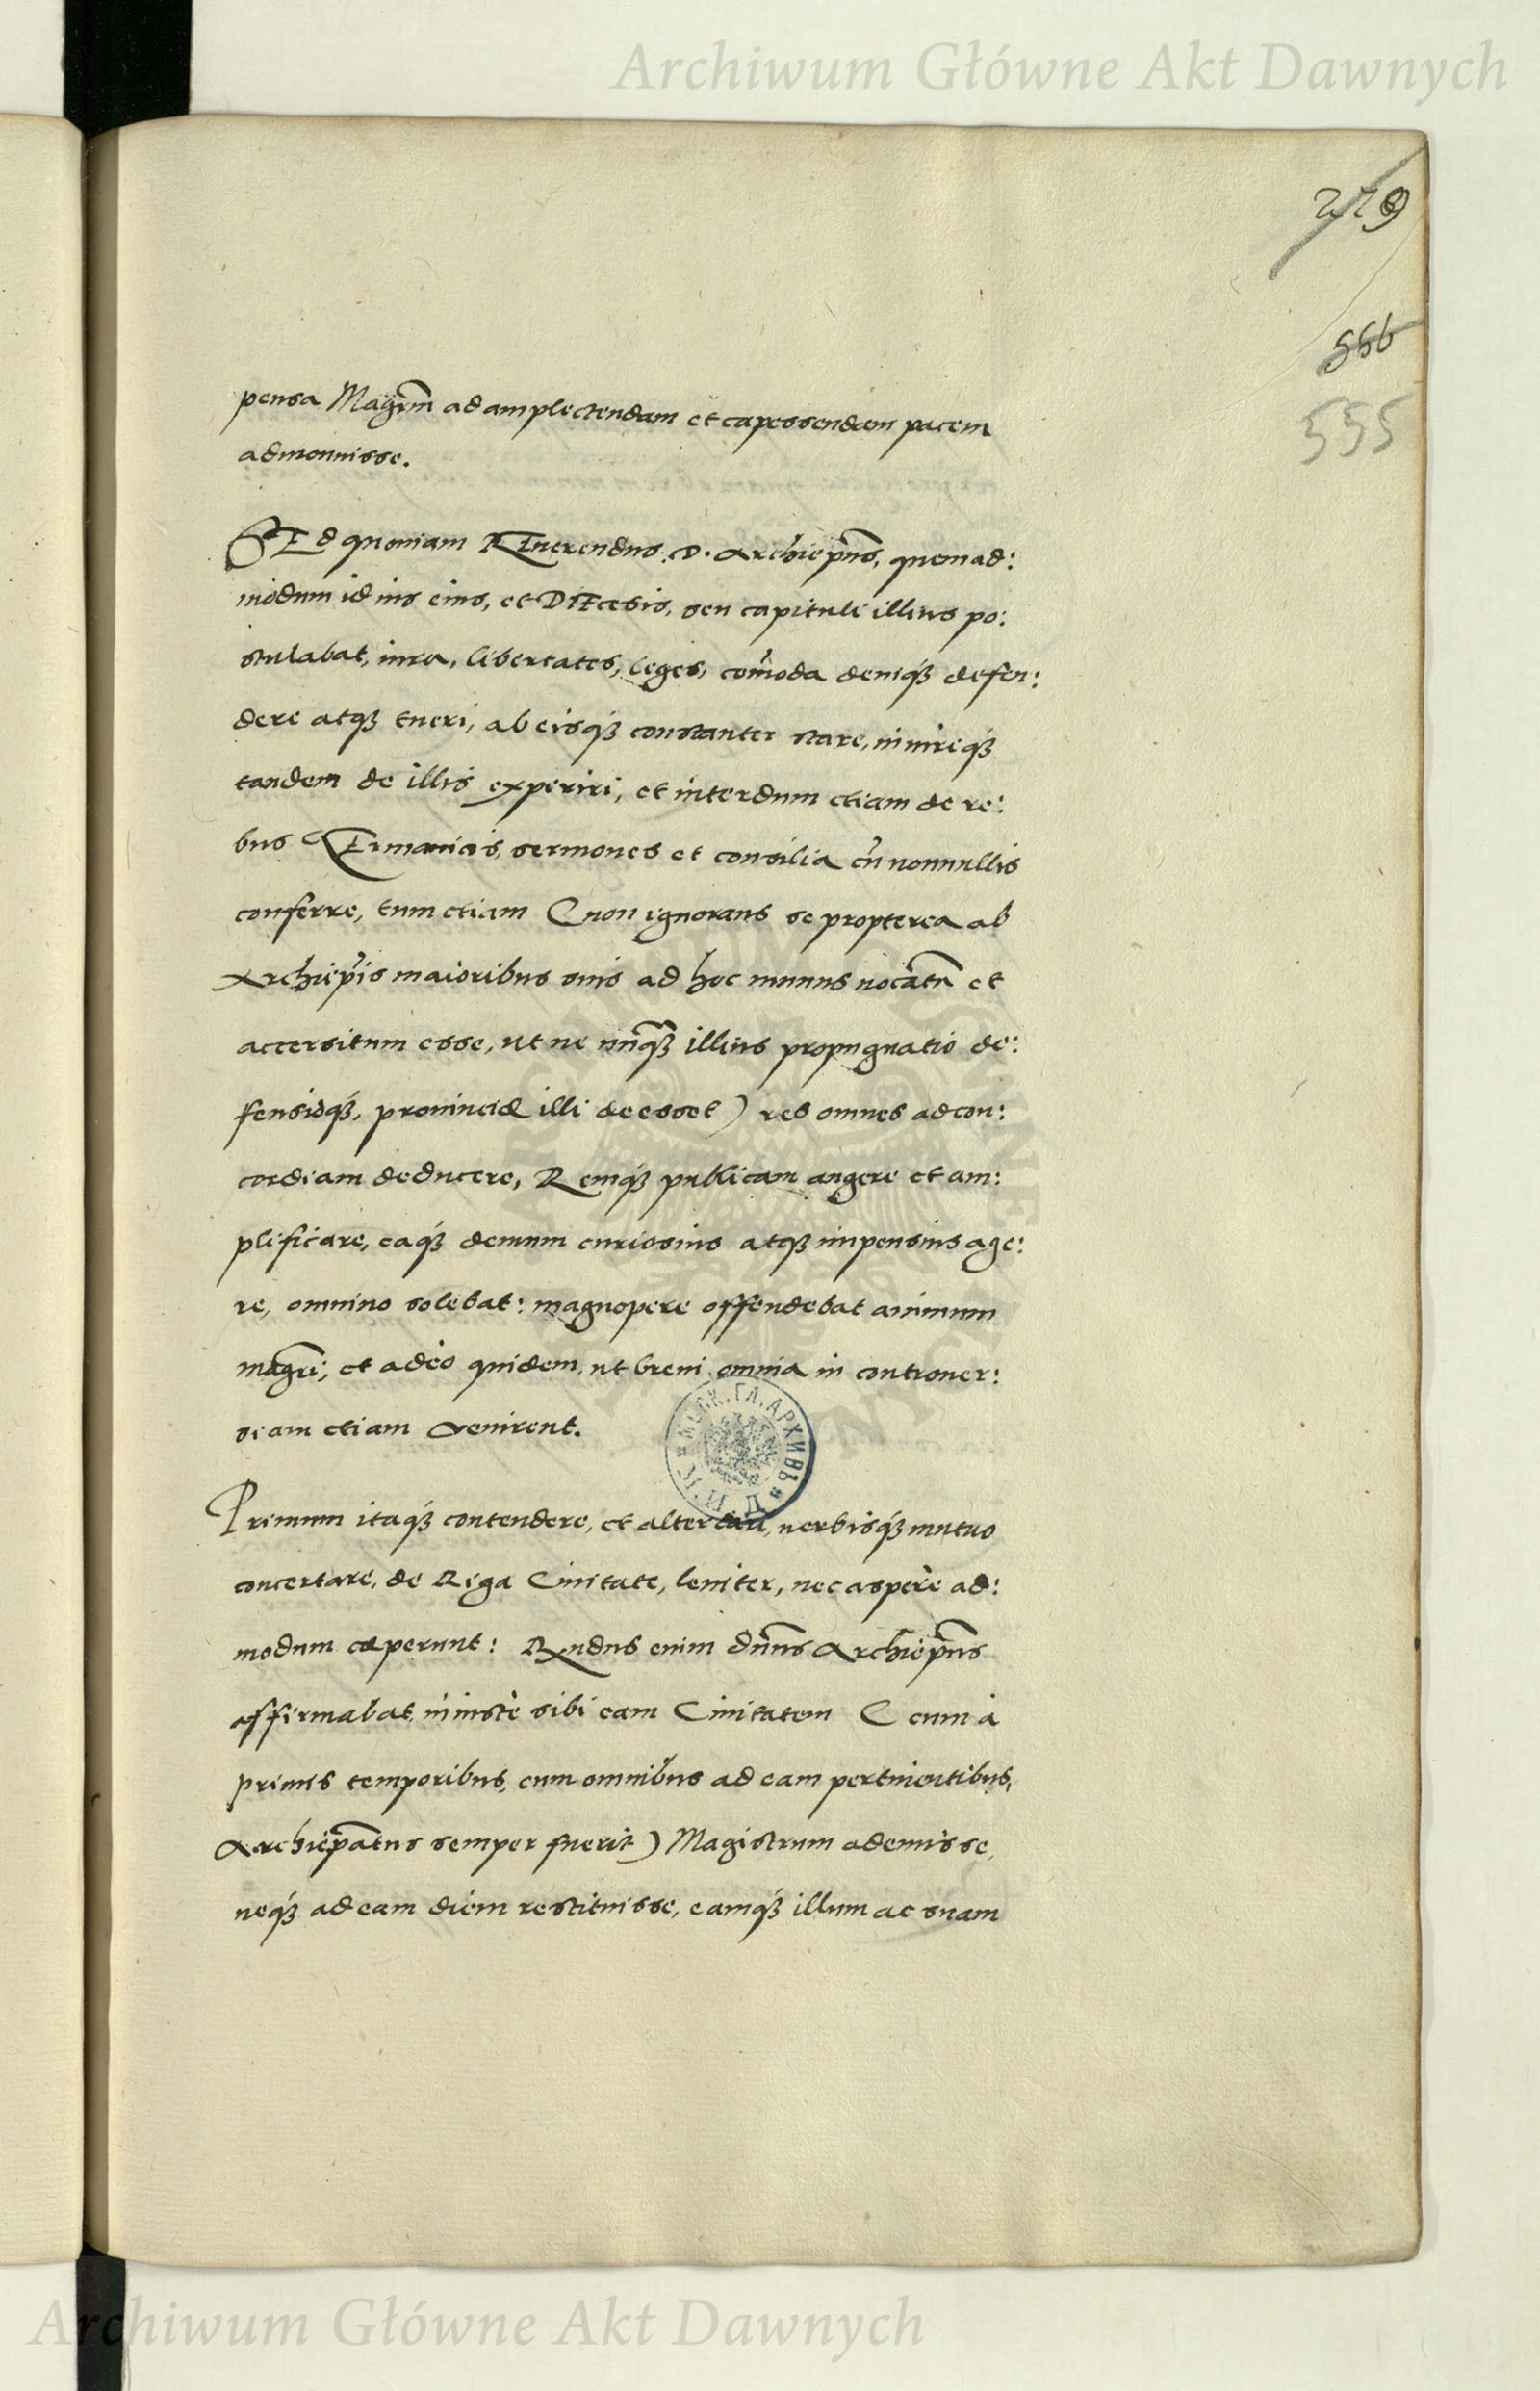 Archiwum Główne Akt Dawnych
219
556
555
pensa Magrm̃ ad amplectendam et capessendam pacem
admonuisse.
SEd quoniam REuerendus. D. Archiep̃us, quemad:
modum id ius eius, et DIEcesis, seu capituli illius po:
stulabat, iura, libertates, leges, com̃oda deniq́ʒ defen:
dere atqʒ tueri, ab eisq́ʒ constanter stare, in iureq́ʒ
tandem de illis experiri, et interdum etiam de re:
bus GErmanicis, sermones et consilia cũ nonnullis
conferre, tum etiam (non ignorans se propterea ab
Archiep̃is maioribus suis ad hoc munus uocatũ et
accersitum esse, ut ne unq̃ʒ illius propugnatio de:
fensioq́ʒ, prouinciæ illi deesset) res omnes ad con:
cordiam deducere, Remq́ʒ publicam augere et am:
plificare, eaq́ʒ demum curiosius atqʒ impensius age:
re, omnino solebat: magnopere offendebat animum
magrĩ; et adeò quidem, ut breui omnia in controuer:
siam etiam venirent.
Primum itaq́ʒ contendere, et altercari, uerbisq́ʒ mutuo
concertare, de Riga Ciuitate, leniter, nec asperè ad:
modum cœperunt: Rxndus enim dñus Archiep̃us
affirmabat, iniustè sibi eam Ciuitatem (cum à
primis temporibus, cum omnibus ad eam pertinentibus,
Archiep̃atus semper fuerit) Magistrum ademisse,
neq́ʒ ad eam diem restituisse, eamq́ʒ illum ac suam
МОСК. ГЛ. АРХИВЪ
Archiwum Główne Akt Dawnych